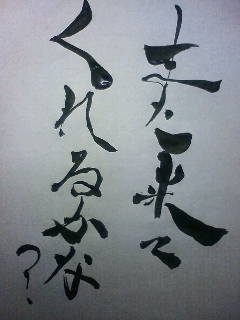 また来て
くれるかな?